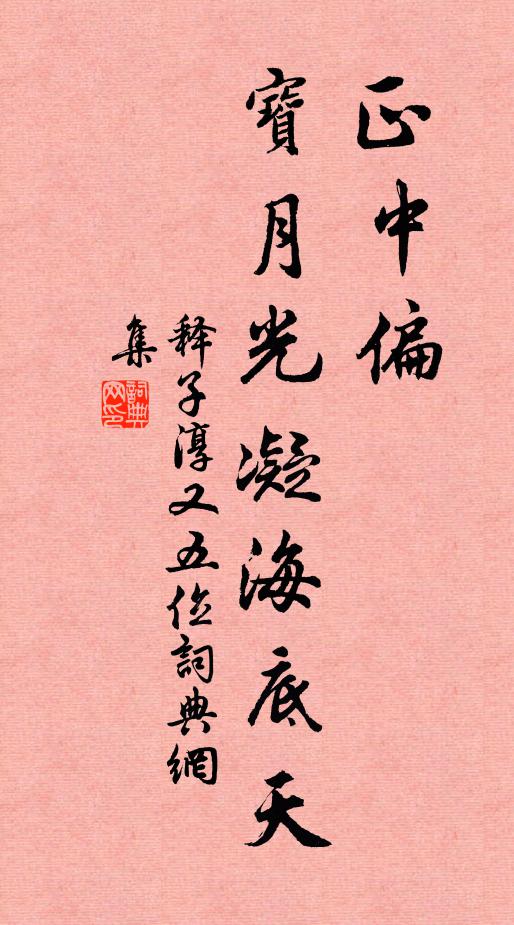 正中偏
寶月光凝海底天
释子淳又五位詞典網
集
詞典
网印